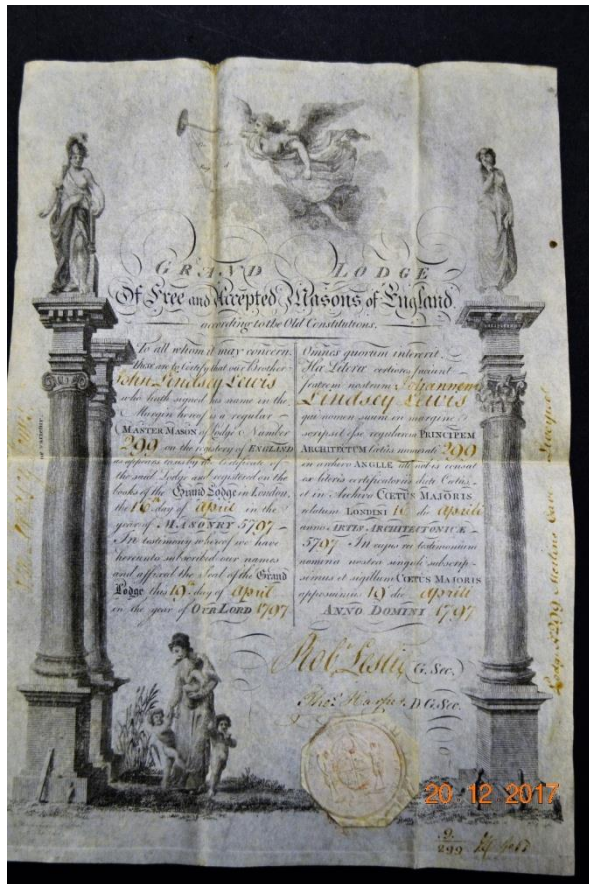 GRAND LODGE
Of Free and Accepted Masons of England,
according to the Old Constitutions.
To all whom it may concern.
These are to Certify that our Brother
John Lindsey Lewis
who hath signed his name in the
Margin hereof is a regular
MASTER MASON of Lodge Number
299 on the registery of ENGLAND
as appears to us by the Certificate of
the said Lodge and registered on the
books of the Grand Lodge in London,
the 16 day of April in the
year of MASONRY 5797
In testimony whereof we have
hereunto subscribed our names
and affixed the Seal of the Grand
Lodge this 19 day of April
in the year of OUR LORD 1797
Omnes quorum intererit,
Hæ Literæ certiores faciunt
fratrem nostrum Johannem
Lindsey Lewis
qui nomen suum in margine
scripsit esse regularem PRINCIPEM
ARCHITECTUM Cœtus numerate 299
in archivo ANGLIÆ uti nobis constat
ex literis certificatoriis dicti Cœtus
et in Archivo CŒTUS MAJORIS
relatum LONDINI 16 die Aprili
anno ARTIS ARCHITECTONICÆ
5797 In cujus rei testimonium
nomina nostra singuli subscrip-
simus et sigillum CŒTUS MAJORIS
apposuimus 19 die Aprili
ANNO DOMINI 1797
Robt. Leslie G. Sec.
Thos. Harper D.G. Sec.
Lodge No 299 Merlins Cave Liverpool
20 12 2017
9
299